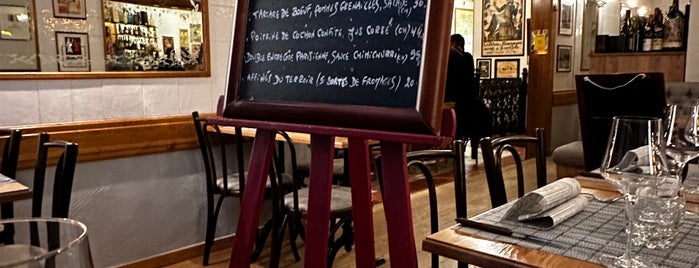 TARTARE DE BŒUF, POMMES GRENAILLES, SALADE (CH) 36.
POITRINE DE COCHON CONFITE, JUS CORSÉ (CH) 44.
DOUBLE ENTRECÔTE PARISIENNE, SAUCE CHIMICHURRI (CH) 95
AFFINÉS DU TERROIR (5 SORTES DE FROMAGES) 20.